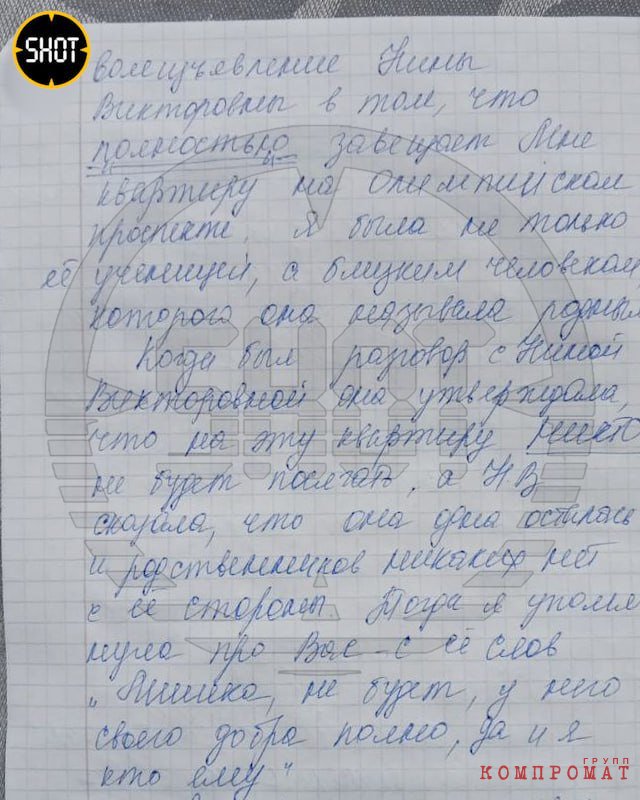 SHOT
волеизъявление Нины
Викторовны в том, что
полностью завещает Мне
квартиру на олимпийском
проспекте. Я была не только
её ученицей, а близким человеком
которого она называла родным
Когда был разговор с Ниной
Викторовной она утверждала,
что на эту квартиру никто
не будет посягать, а НВ
сказала, что она одна осталась
и родственников никаких нет
с её стороны. Тогда я упомя
нула про Вас – с её слов
„Мишка, не будет, у него
своего добра полно, да и я
кто ему"
ГРУПП
КОМПРОМАТ